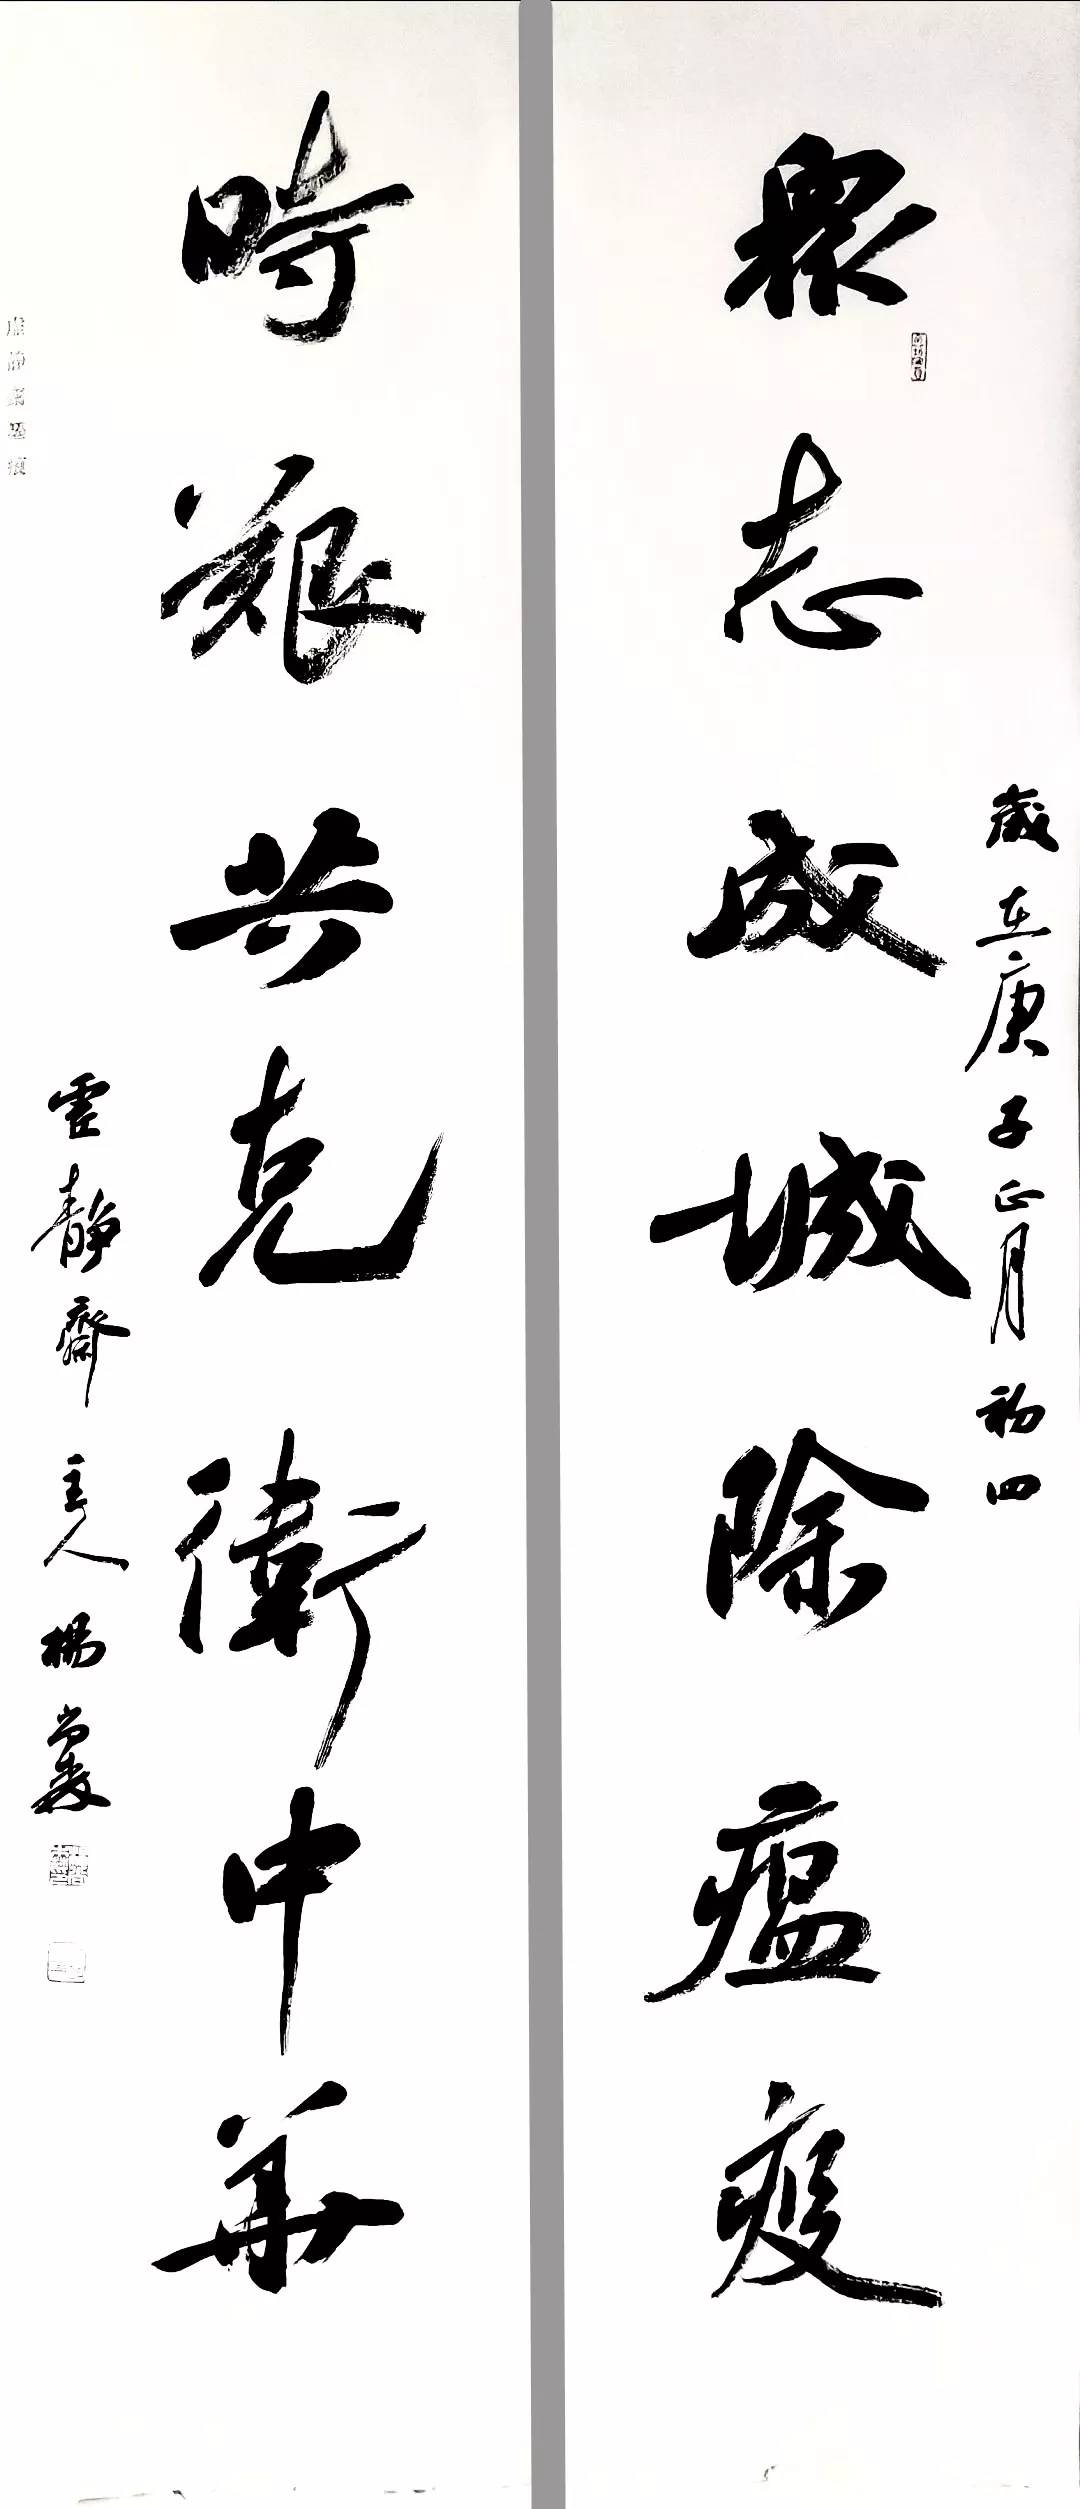 眾志成城除瘟疫
歲在庚子正月初四
時艱共克衛中華
虛靜齋主人楊